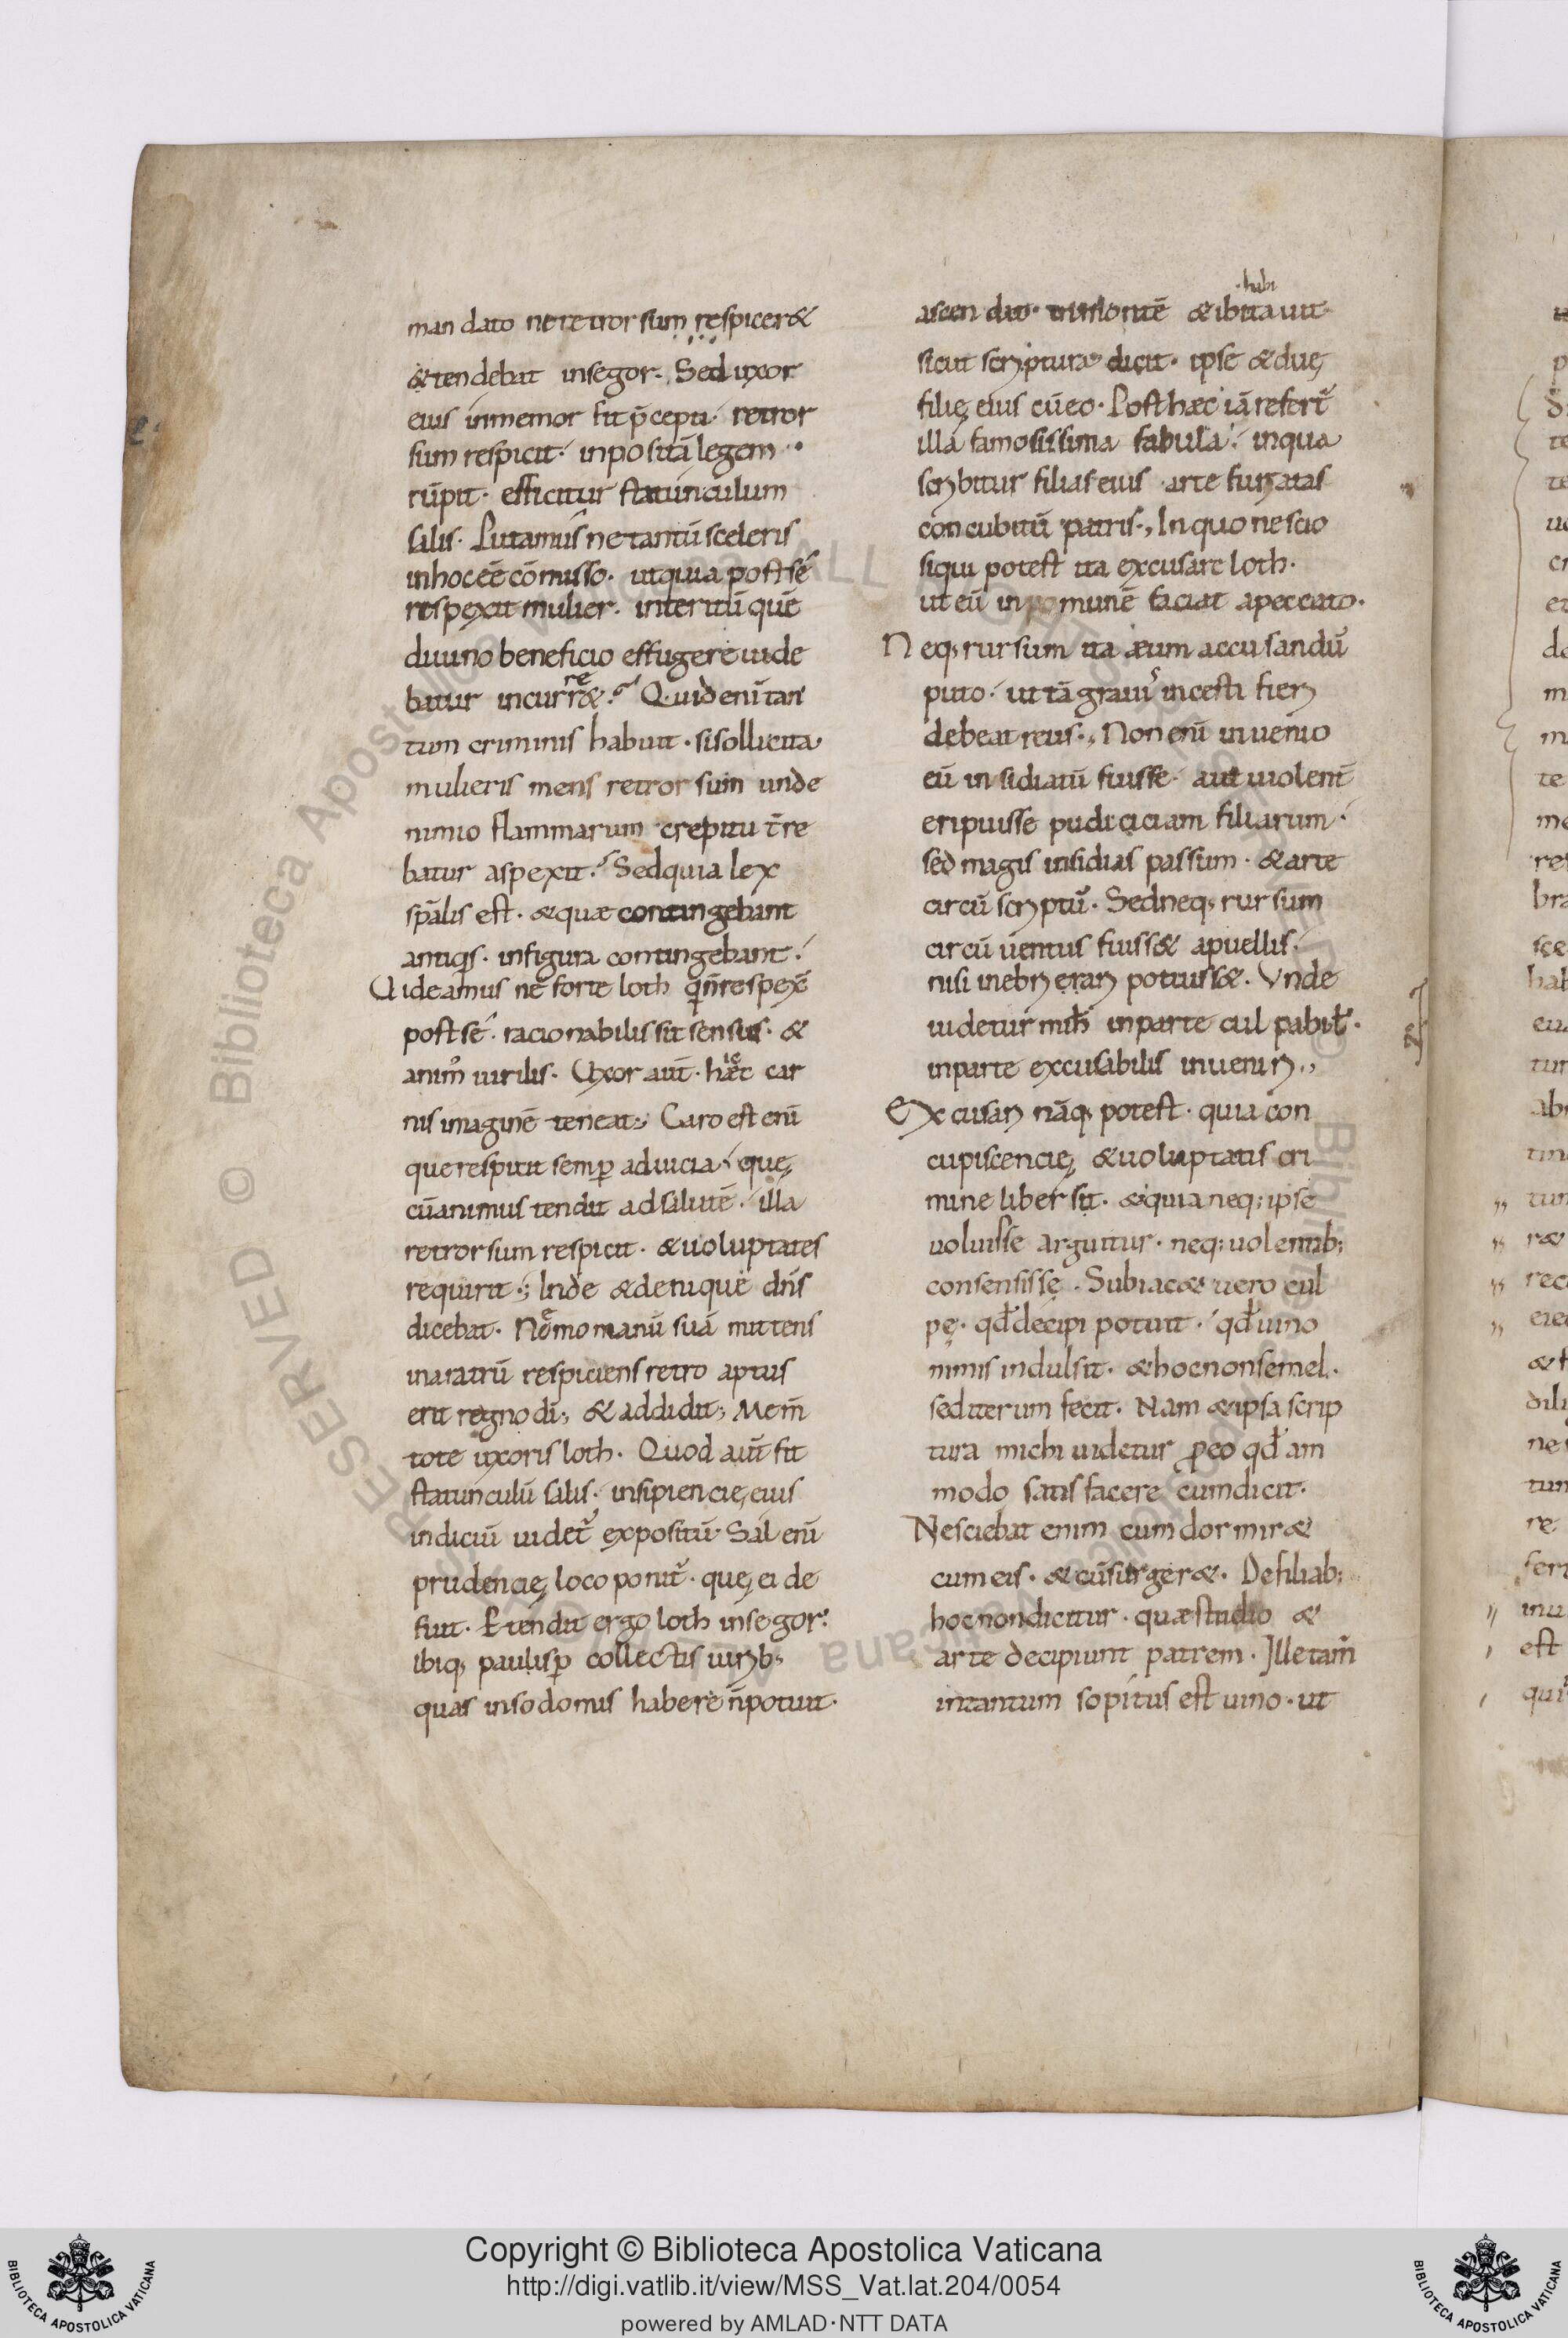 man dato ne retror sum respicer&
&tendebat insegor. Sed uxor
eius inmemor fit p̄cepti. retror
sum respicit. inpositā legem.
rūpit. efficitur statunculum
salis. Putamus ne tantū sceleris
inhoceē cōmisso. utquia post sé
respexit mulier. interitū quē
diuino beneficio effugere uide
batur incurr&. Quid enī tan
tum criminis habuit. sisollicita
mulieris mens retror sum unde
nimio flammarum crepitu t̄re
batur aspexit. Sedquia lex
sp̄alis est. &quæ contingebant
antiqis. infigura contingebant.
Uideamus ne forte loth qin̄respexē
post sé. racionabilis sit sensus. &
anim᾽ uirilis. Uxor aūt. hæc car
nis imaginē teneat; Caro est enī
que respicit semp ad uicia. quę
cūanimus tendit ad salutē. illa
retrorsum respicit. &uoluptates
requirit; Inde &denique dn̄s
dicebat. Nemo manū suā mittens
inaratrū respiciens retro aptus
erit regno dī; & addidit; Mem̄
tote uxoris loth. Quod aūt fit
statunculū salis. insipiencię eius
indiciū uidet᾽ expositū. Sal enī
prudencię loco ponit᾽. quę ei de
fuit. Etendit ergo loth insegor.
ibiq; paulisp collectis uirib;
quas insodomis habere n̄potuit.
habi
ascen dit. inmontē &ibitauit
sicut scriptura dicit. ipse &duę
filię eius cūeo. Posthæc iā refert᾽
illa famosissima fabula. inqua
scribitur filias eius arte furatas
concubitū patris; In quo nescio
siqui potest ita excusare loth.
ut eū in munē faciat apeccato.
Neq; rursum ita æum accusandū
puto. ut tā graui incesti fieri
debeat reus; Non enī inuenio
eū insidiatū fuisse. aut uiolent̄
eripuisse pudiciciam filiarum.
sed magis insidias passum. &arte
circū scriptū. Sedneq; rursum
circū uentus fuiss& apuellis.
nisi inebri erari potuiss&. Unde
uidetur mih̄ inparte cul pabil᾽.
inparte excusabilis inueniri;
Excusari nāq; potest. quia con
cupiscencię &uoluptatis cri
mine liber sit. &quia neq; ipse
uoluisse arguitur. neq; uolentib;
consensisse. Subiac& uero cul
pę. qd᾽ decipi potuit. qd᾽ uino
nimis indulsit. &hocnonsemel.
sed iterum fecit. Nam &ipsa scrip
tura michi uidetur peo qd᾽ am
modo satis facere cumdicit.
Nesciebat enim cum dormir&
cum eis. &cūsurger&. Defiliab;
hocnondicitur. quæstudio &
arte decipiunt patrem. Illetam̄
intantum sopitus est uino. ut
Copyright © Biblioteca Apostolica Vaticana
http://digi.vatlib.it/view/MSS_Vat.lat.204/0054
powered by AMLAD·NTT DATA